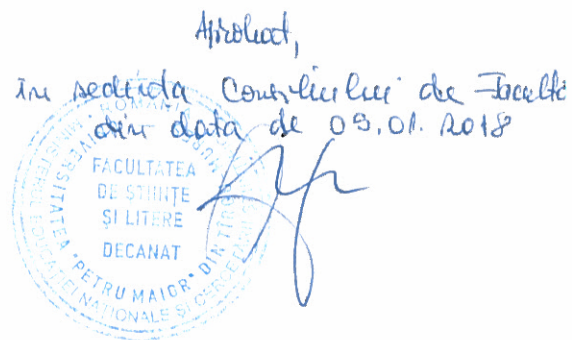 Aprobat,
în ședința Consiliului de Facultate
din data de 09.01.2018
ROMÂNIA
MINISTERUL EDUCAȚIEI NAȚIONALE ȘI CERCETĂRII
UNIVERSITATEA "PETRU MAIOR" DIN TÎRGU MUREȘ
FACULTATEA
DE ȘTIINȚE
ȘI LITERE
DECANAT